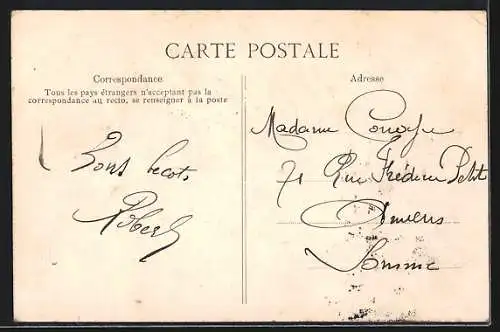 CARTE POSTALE
Correspondance
Tous les pays étrangers n'acceptant pas la
correspondance au recto, se renseigner à la poste
Bons becots
Robert
Adresse
Madame
71 Rue Frédéric Petit
Amiens
Somme